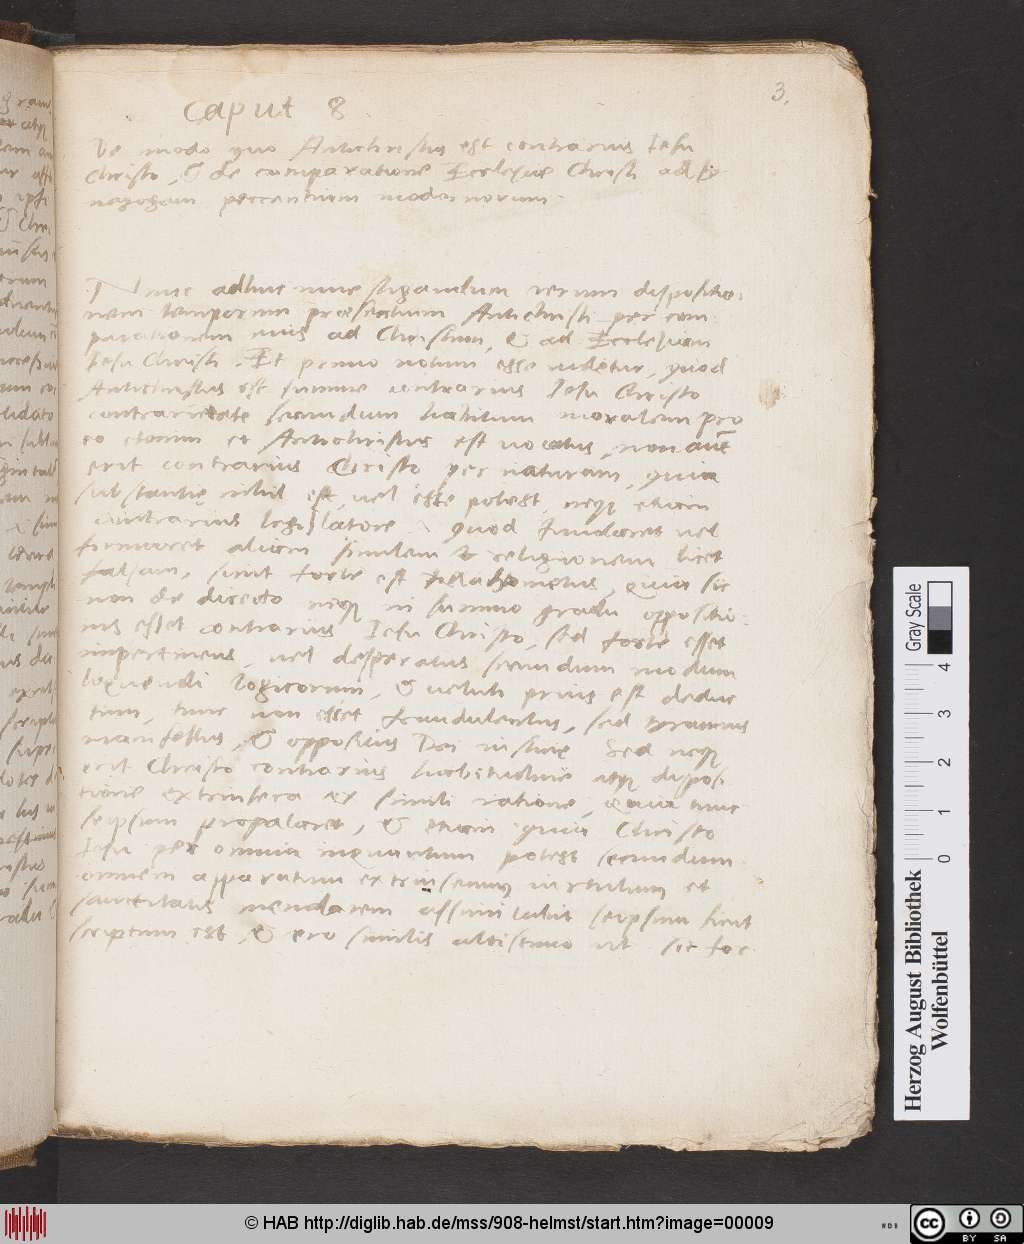 3.
Caput 8
De modo quo Antichristus est contrarius Iesu
Christo, & de comparatione Ecclesiae Christi ad sy
nagogam peccantium modernorum.
Nunc adhuc investigandum rerum dispositio:
nem temporum praesentium Antichristi per com
parationem eius ad Christum, & ad Ecclesiam
Iesu Christi. Et primo notum esse videtur, quod
Antichristus est summe contrarius Iesu Christo
contrarietate secundum habitum moralem pro
eo etenim et Antichristus est vocatus, non aūt
erit contrarius Christo per naturam, quia
substantię nihil est, vel esse potest, neqꝫ etiam
contrarius legislatore, quod fundaret vel
firmaret aliam similem religionem licet
falsam, sicut forte est Machometus, quia sic
non de directo neqꝫ in summo gradu oppositio:
nis esset contrarius Iesu Christo, sed forte esset
impertinens, vel desperatus secundum modum
loquendi logicorum, & veluti prius est deduc
tum, tunc non esset fraudulentus, sed tyrannus
manifestus, & oppositus Dei iustitię Sed neqꝫ
erit Christo contrarius habitudine atqꝫ disposi
tione extrinseca ex simili ratione, Quia tunc
seipsum propalaret, & etiam quia Christo
Iesu per omnia inquantum potest secundum
omnem apparatum extrinsecum virtutum et
sanctitatis mendacem assimilabit seipsum sicut
scriptum est, & ero similis altissimo ut sic for
Gray Scale
0 1 2 3 4
Herzog August Bibliothek
Wolfenbüttel
© HAB http://diglib.hab.de/mss/908-helmst/start.htm?image=00009
WDB
cc BY SA